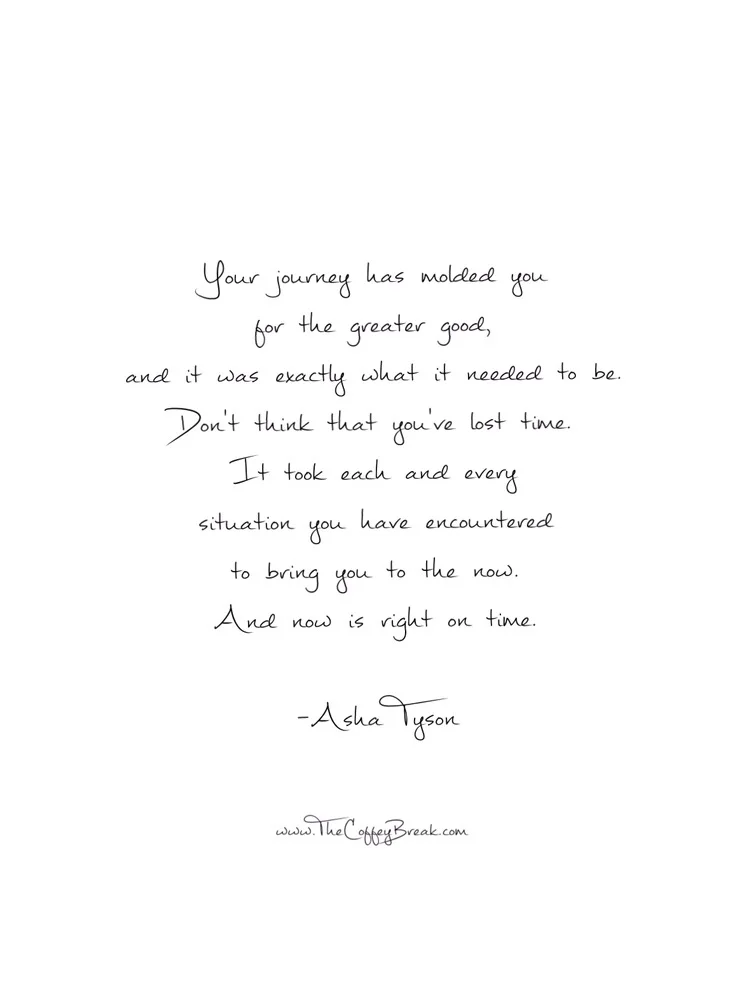 Your journey has molded you
for the greater good,
and it was exactly what it needed to be.
Don't think that you've lost time.
It took each and every
situation you have encountered
to bring you to the now.
And now is right on time.
-Asha Tyson
www.TheCoffeyBreak.com